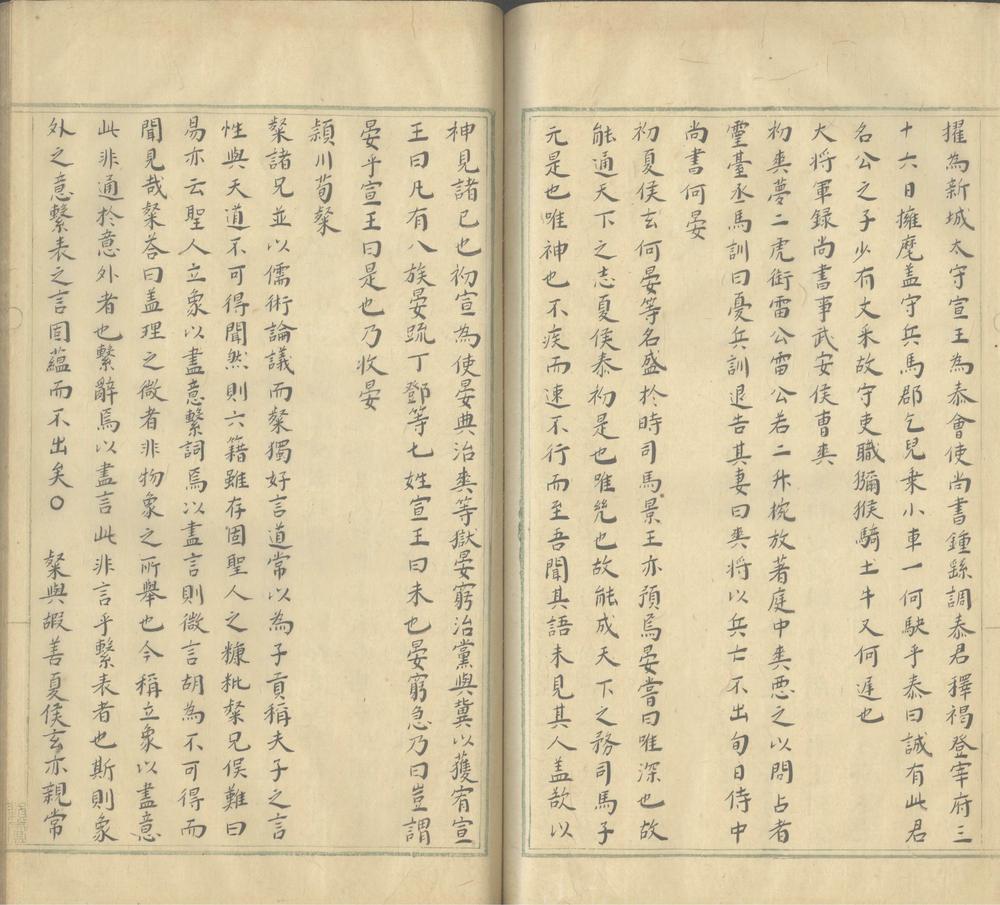 擢為新城太守宣王為泰會使尚書鍾繇調泰君釋褐登宰府三
十六日擁麾盖守兵馬郡乞兒乗小車一何駃乎泰曰誠有此君
名公之子少有文釆故守吏職獼猴騎土牛又何遲也
大将軍録尚書事武安侯曹爽
初爽夢二虎銜雷公雷公若二升椀放著庭中爽悪之以問占者
靈臺丞馬訓曰憂兵訓退告其妻曰爽将以兵亡不出旬日侍中
尚書何晏
初夏侯玄何晏等名盛於時司馬景王亦預焉晏嘗曰唯深也故
能通天下之志夏侯泰初是也唯㡬也故能成天下之務司馬子
元是也唯神也不疾而速不行而至吾聞其語未見其人盖欲以
神見諸已也初宣為使晏典治爽等獄晏窮治黨與冀以獲宥宣
王曰凡有八族晏䟽丁鄧等七姓宣王曰未也晏窮急乃曰豈謂
晏乎宣王曰是也乃收晏
潁川荀粲
粲諸兄並以儒術論議而粲獨好言道常以為子貢稱夫子之言
性與天道不可得聞然則六籍雖存固聖人之糠粃粲兄俣難曰
易亦云聖人立象以盡意繫詞焉以盡言則微言胡為不可得而
聞見哉粲荅曰盖理之微者非物象之所舉也今稱立象以盡意
此非通於意外者也繫辭焉以盡言此非言乎繫表者也斯則象
外之意繫表之言固蘊而不出矣〇　粲與嘏善夏侯玄亦親常